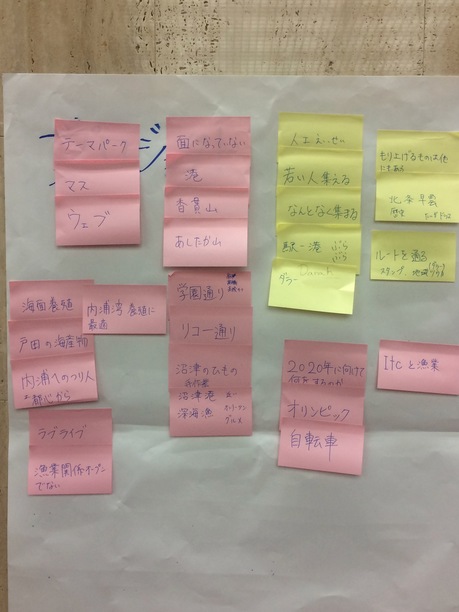 テーマパーク
マス
ウェブ
面になっていない
港
香貫山
あしたか山
人工えいせい
若い人集える
なんとなく集まる
駅-港 ぶら
ぶら
ダラー
もり上げるものは他
にもある
北条早雲
歴史
ルートを通る
スタンプ 地図
海面養殖
内浦湾 養殖に
最適
戸田の海産物
内浦へのつり人
都心から
ラブライブ
漁業関係オープン
でない
学園通り
リコー通り
沼津のひもの
沼津港
深海漁 グルメ
2020年に向けて
何をするのか
オリンピック
自転車
Itcと漁業